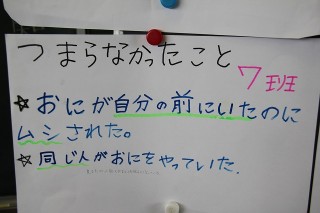 つまらなかったこと
7班
☆おにが自分の前にいたのに
ムシされた。
☆同じ人がおにをやっていた.